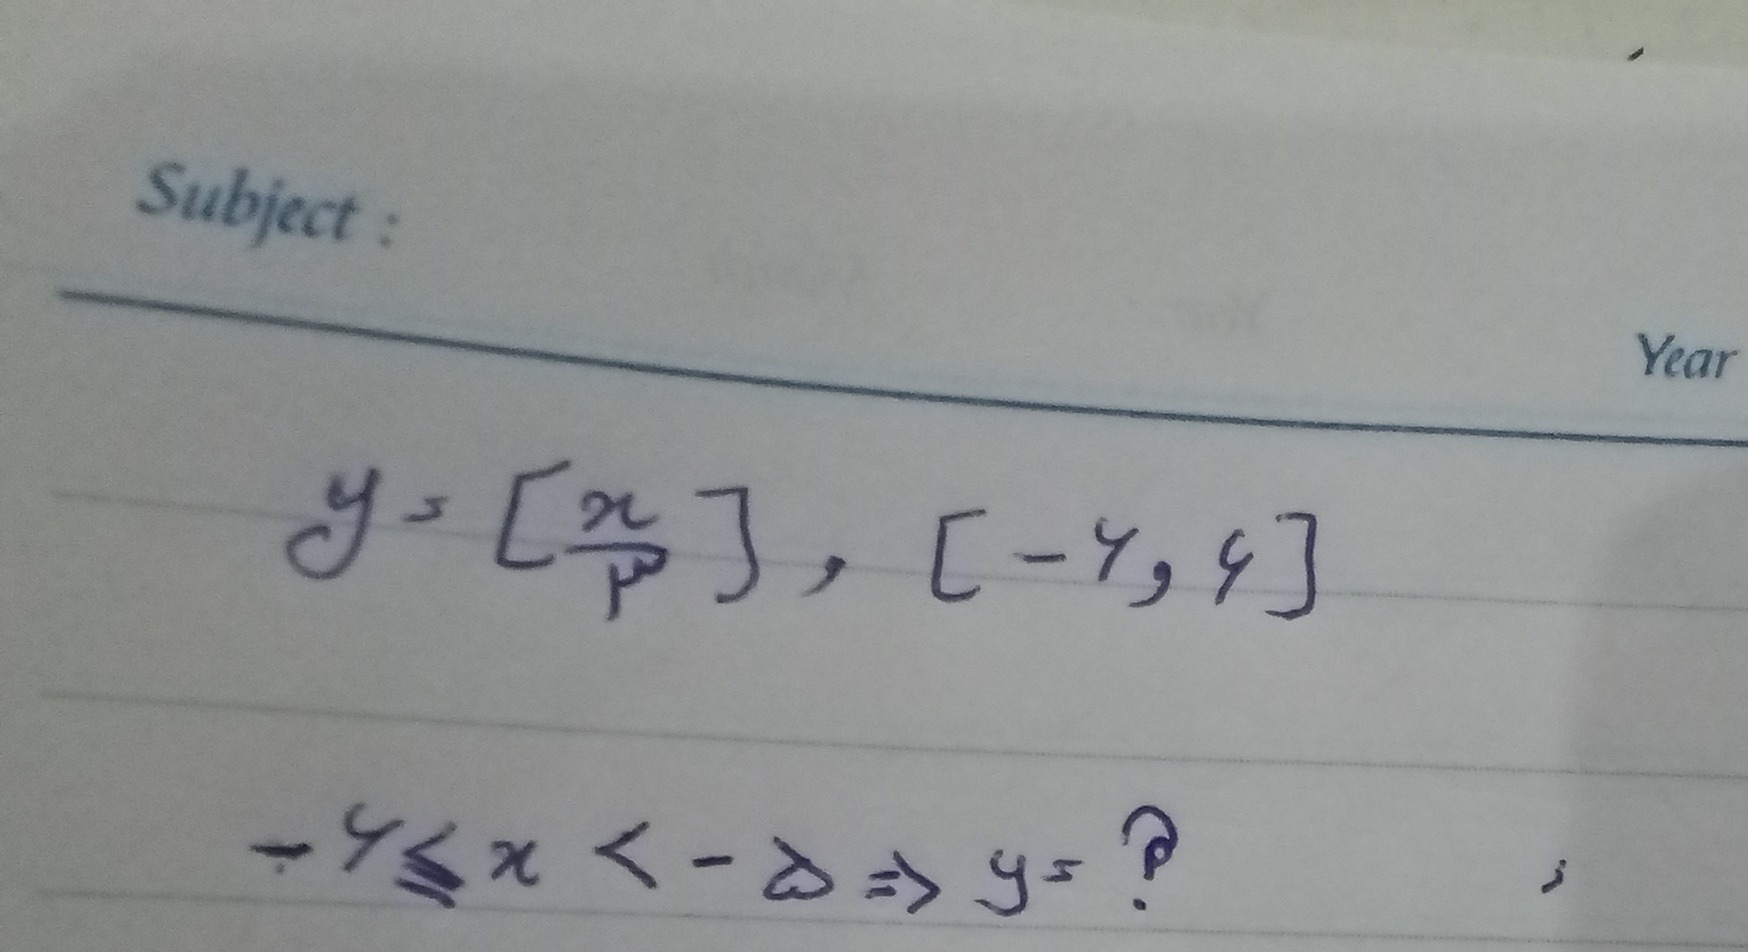 Subject :
Year
y = [x/۳] , [-۶, ۶]
-۶ ≤ x < -۵ ⇒ y = ? ;